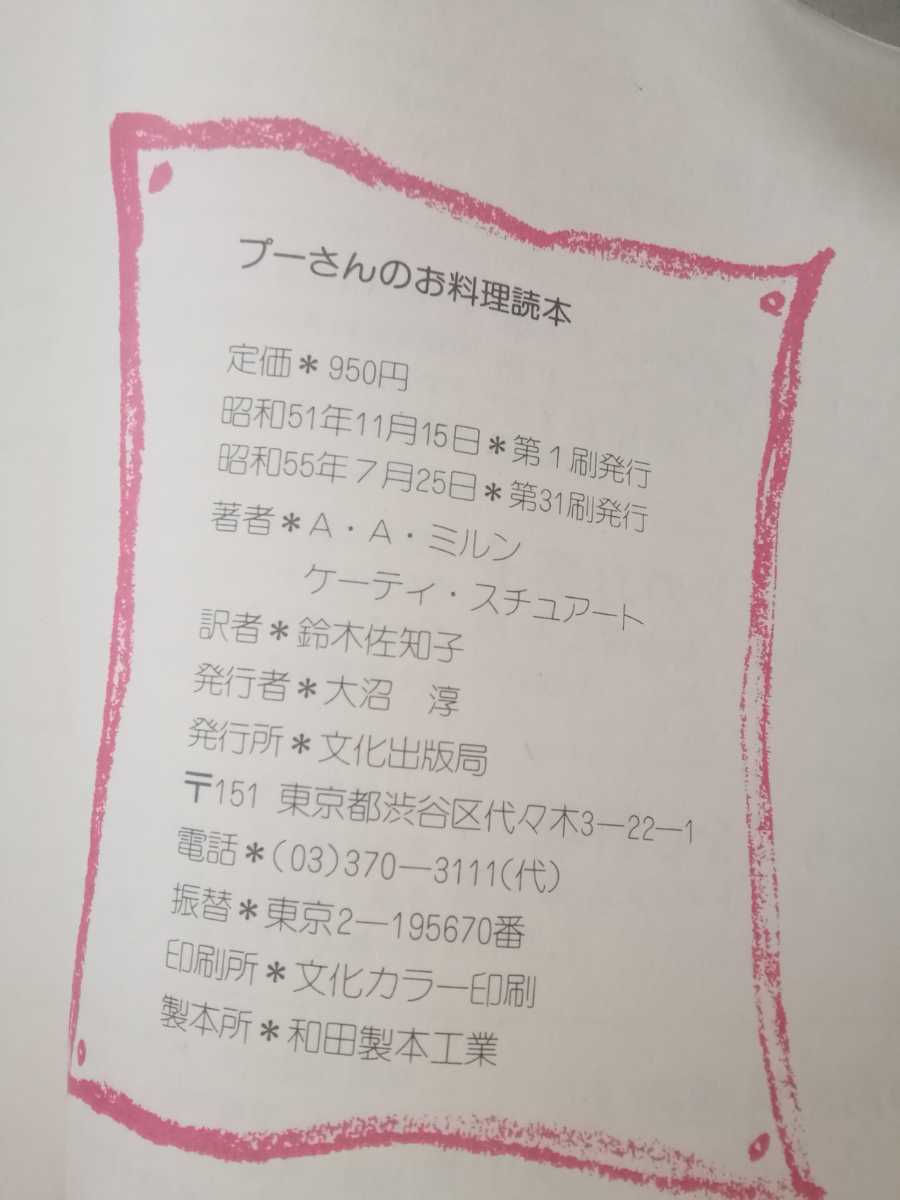 プーさんのお料理読本
定価＊950円
昭和51年11月15日＊第1刷発行
昭和55年7月25日＊第31刷発行
著者＊A・A・ミルン
ケーティ・スチュアート
訳者＊鈴木佐知子
発行者＊大沼　淳
発行所＊文化出版局
〒151 東京都渋谷区代々木3―22―1
電話＊(03)370―3111(代)
振替＊東京2―195670番
印刷所＊文化カラー印刷
製本所＊和田製本工業